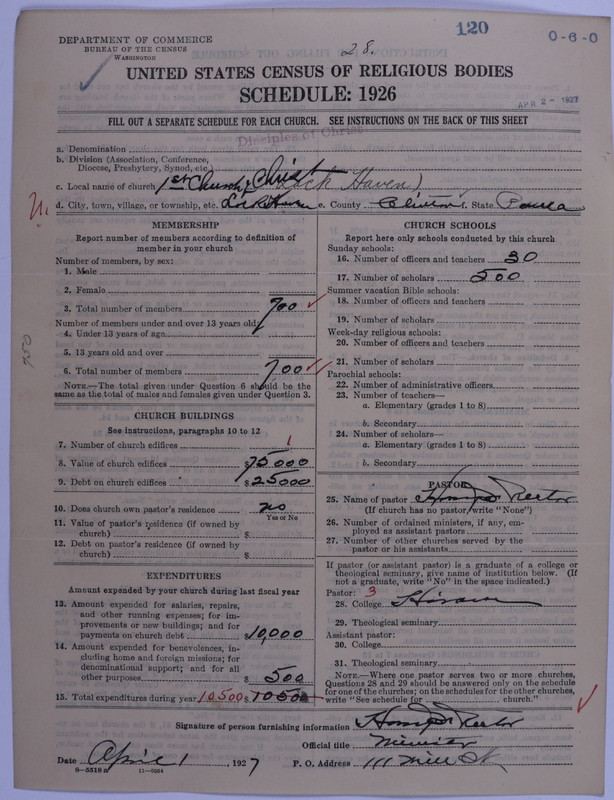 DEPARTMENT OF COMMERCE
BUREAU OF THE CENSUS
WASHINGTON
28.
120
0-6-0
UNITED STATES CENSUS OF RELIGIOUS BODIES
SCHEDULE: 1926
APR 2- 1927
FILL OUT A SEPARATE SCHEDULE FOR EACH CHURCH. SEE INSTRUCTIONS ON THE BACK OF THIS SHEET
Disciples of Christ
a. Denomination
b. Division (Association, Conference,
Diocese, Presbytery, Synod, etc.)
c. Local name of church 1st Church of Christ (Lock Haven)
d. City, town, village, or township, etc. Lock Haven e. County Clinton f. State Penna
MEMBERSHIP
Report number of members according to definition of
member in your church
Number of members, by sex:
1. Male
2. Female
3. Total number of members 700
Number of members under and over 13 years old:
4. Under 13 years of age
5. 13 years old and over
6. Total number of members 700
NOTE.—The total given under Question 6 should be the
same as the total of males and females given under Question 3.
CHURCH BUILDINGS
See instructions, paragraphs 10 to 12
7. Number of church edifices 1
8. Value of church edifices $75000
9. Debt on church edifices $25000
10. Does church own pastor's residence? no
Yes or No
11. Value of pastor's residence (if owned by
church) $
12. Debt on pastor's residence (if owned by
church) $
EXPENDITURES
Amount expended by your church during last fiscal year
13. Amount expended for salaries, repairs,
and other running expenses; for im-
provements or new buildings; and for
payments on church debt $10,000
14. Amount expended for benevolences, in-
cluding home and foreign missions; for
denominational support; and for all
other purposes $500
15. Total expenditures during year 10500 $
CHURCH SCHOOLS
Report here only schools conducted by this church
Sunday schools:
16. Number of officers and teachers 30
17. Number of scholars 500
Summer vacation Bible schools:
18. Number of officers and teachers
19. Number of scholars
Week-day religious schools:
20. Number of officers and teachers
21. Number of scholars
Parochial schools:
22. Number of administrative officers
23. Number of teachers—
a. Elementary (grades 1 to 8)
b. Secondary
24. Number of scholars—
a. Elementary (grades 1 to 8)
b. Secondary
PASTOR
25. Name of pastor Rector
(If church has no pastor, write "None")
26. Number of ordained ministers, if any, em-
ployed as assistant pastors
27. Number of other churches served by the
pastor or his assistants
If pastor (or assistant pastor) is a graduate of a college or
theological seminary, give name of institution below. (If
not a graduate, write "No" in the space indicated.)
Pastor: 3
28. College Hiram
29. Theological seminary
Assistant pastor:
30. College
31. Theological seminary
NOTE.—Where one pastor serves two or more churches,
Questions 28 and 29 should be answered only on the schedule
for one of the churches; on the schedules for the other churches,
write "See schedule for church."
Signature of person furnishing information Rector
Official title Minister
Date April 1, 1927
P. O. Address 111 Mill St.
8-5518a 11-9054